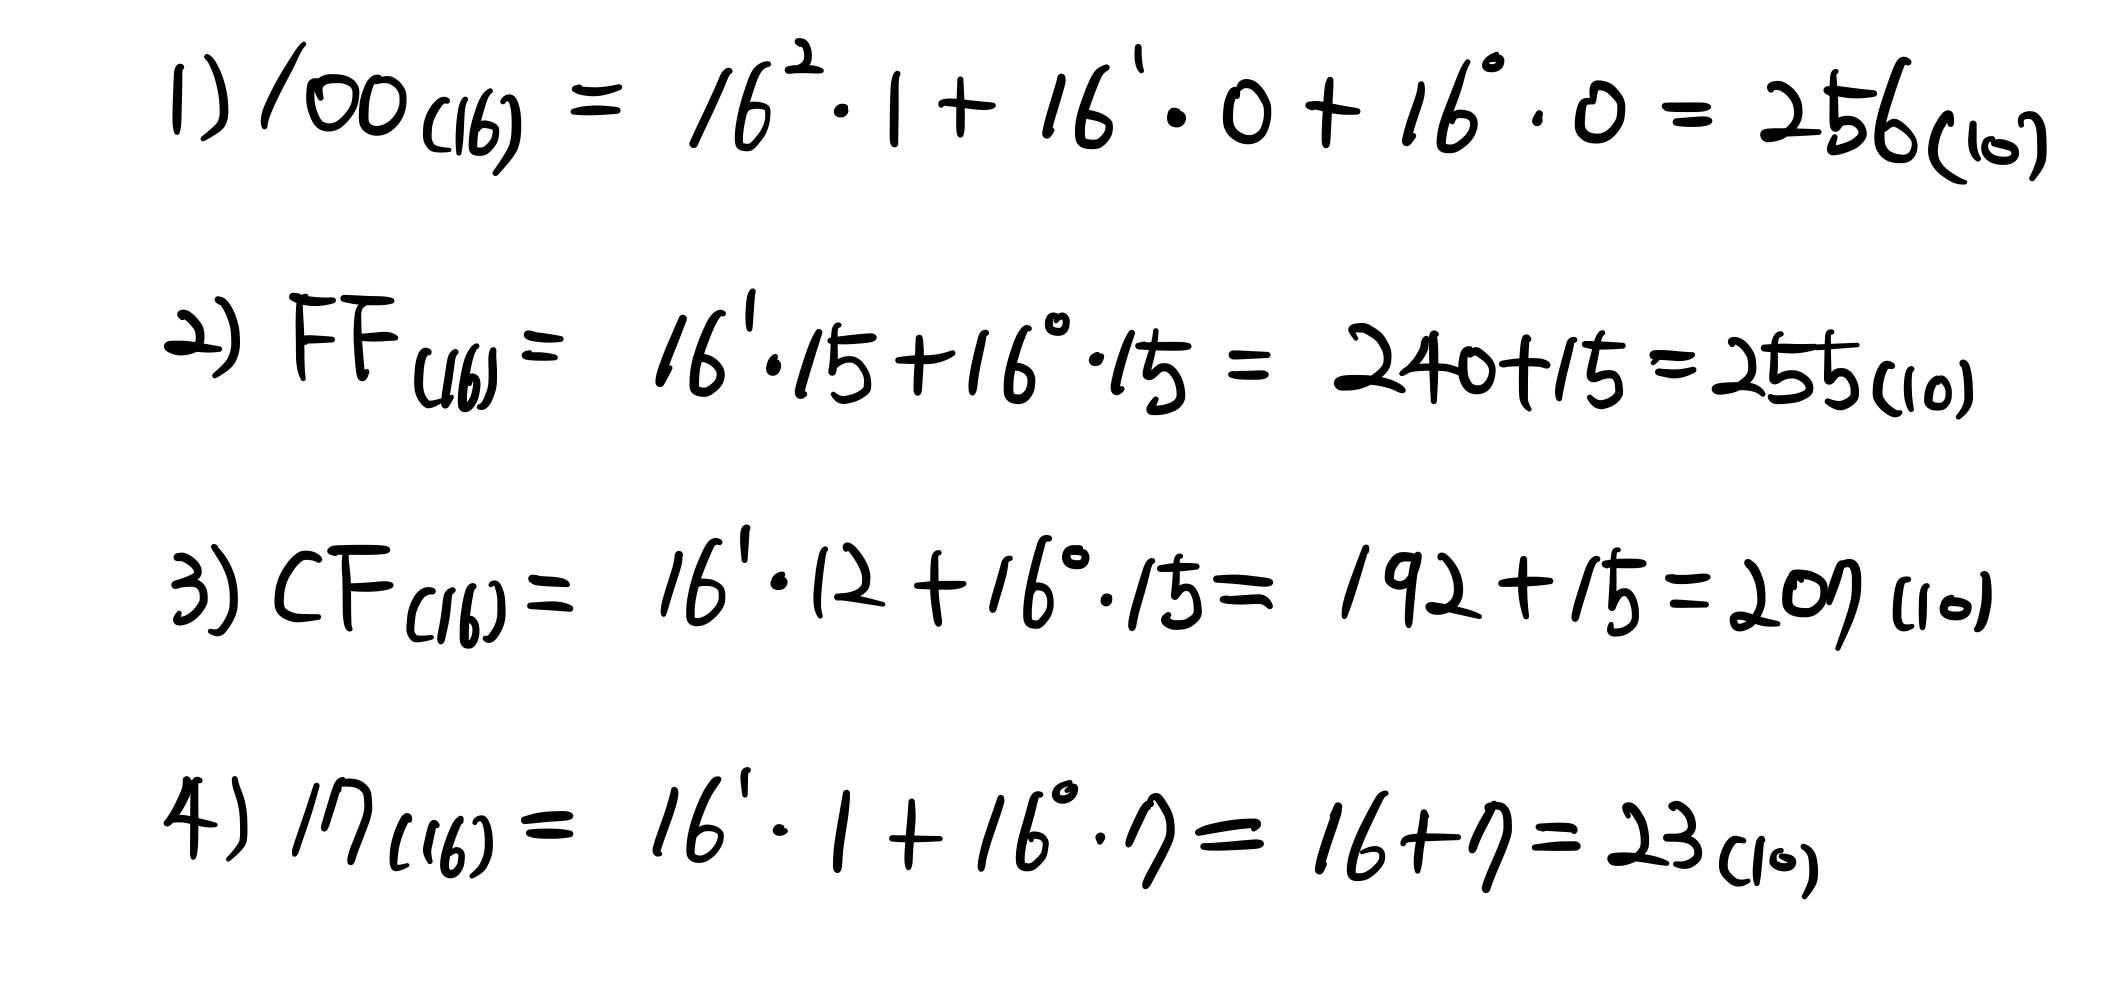 1) 100₍₁₆₎ = 16² · 1 + 16¹ · 0 + 16⁰ · 0 = 256₍₁₀₎
2) FF₍₁₆₎ = 16¹ · 15 + 16⁰ · 15 = 240 + 15 = 255₍₁₀₎
3) CF₍₁₆₎ = 16¹ · 12 + 16⁰ · 15 = 192 + 15 = 207₍₁₀₎
4) 17₍₁₆₎ = 16¹ · 1 + 16⁰ · 7 = 16 + 7 = 23₍₁₀₎